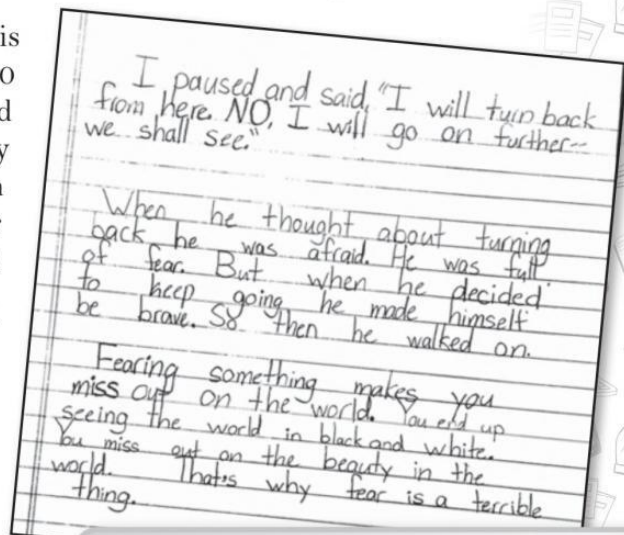 is
o
d
y
I paused and said, "I will turn back
from here. NO, I will go on further--
we shall see."
When he thought about turning
back he was afraid. He was full
of fear. But when he decided
to keep going he made himself
be brave. So then he walked on.
Fearing something makes you
miss out on the world. You end up
seeing the world in black and white.
You miss out on the beauty in the
world. That's why fear is a terrible
thing.